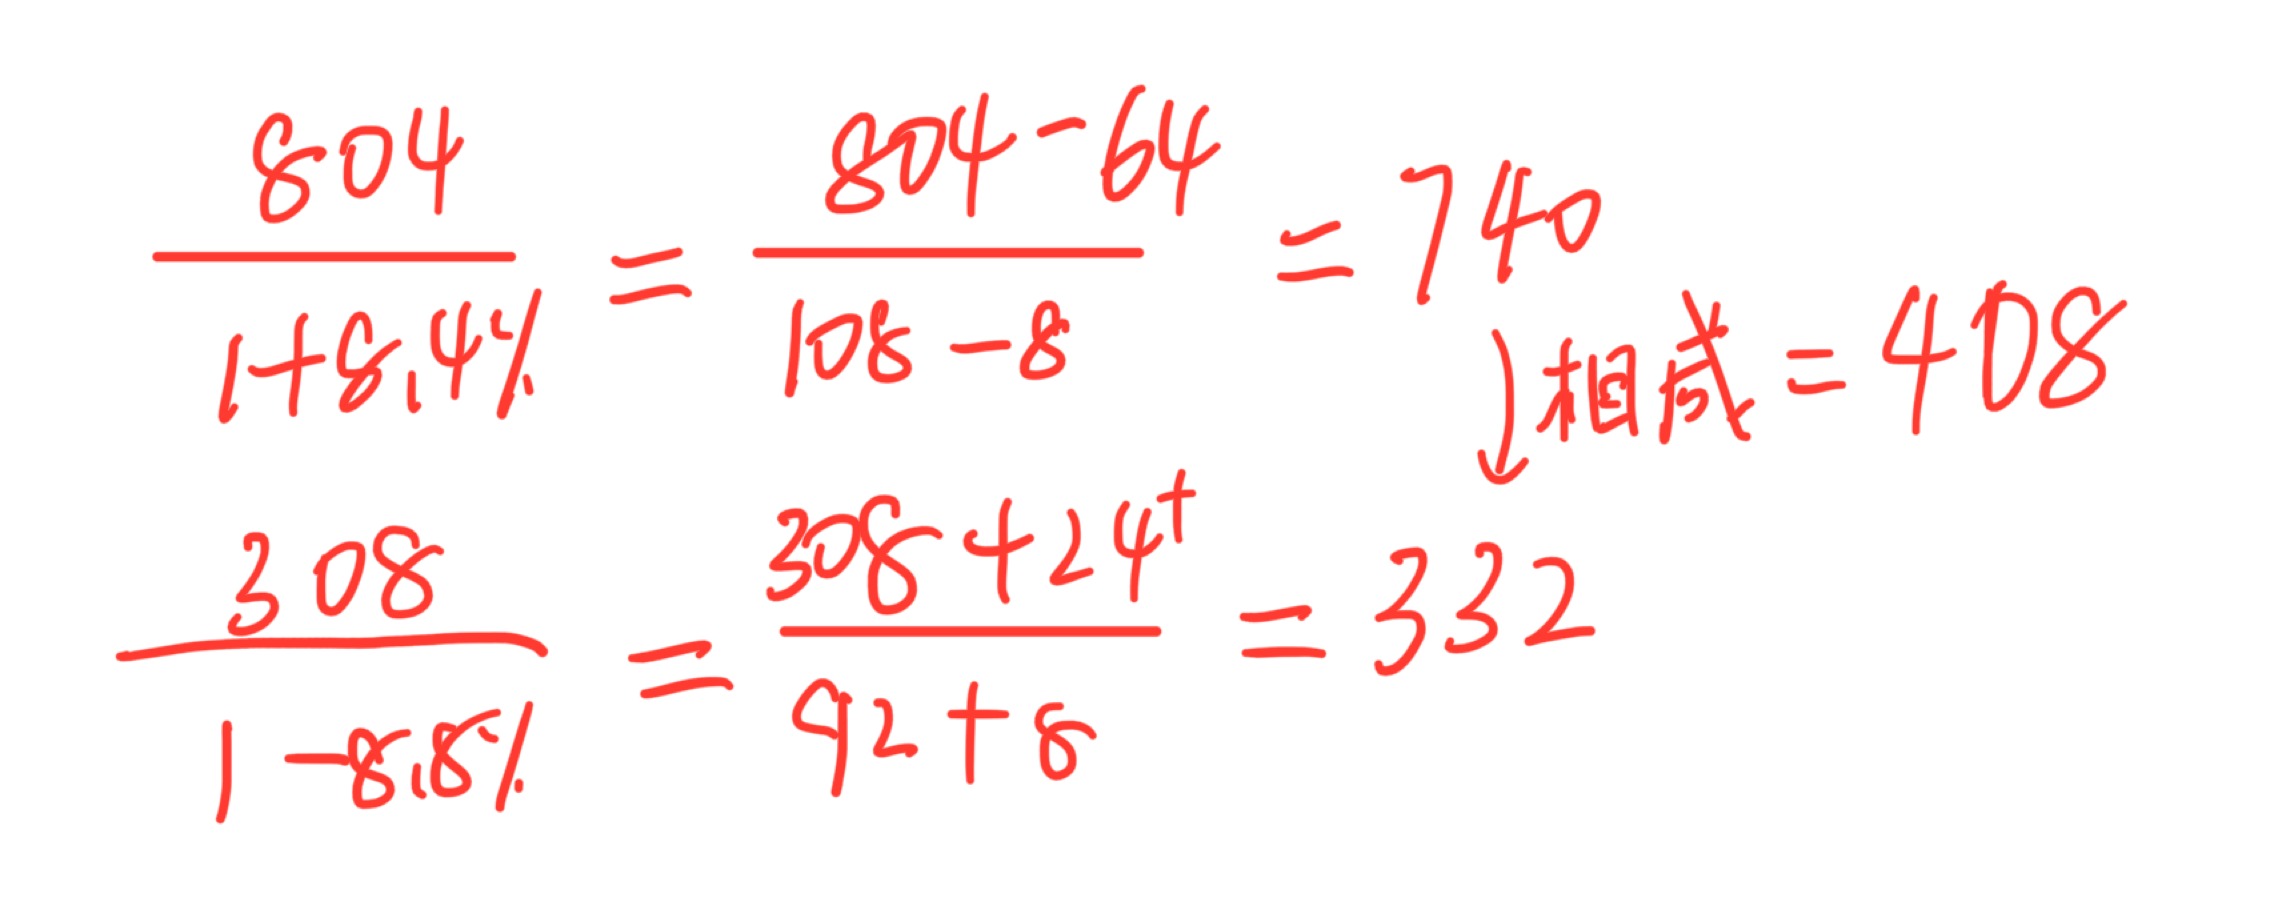 804/1+8.4% = 804-64/108-8 = 740
↓相减=408
308/1-8.8% = 308+24⁺/92+8 = 332